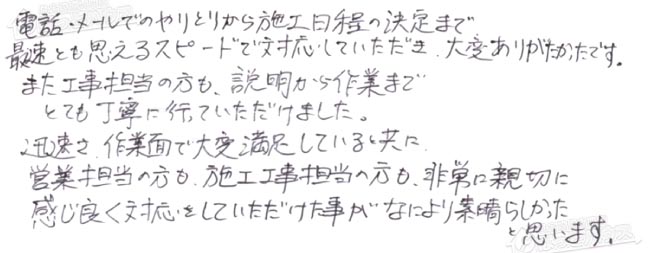 電話・メールでのやりとりから施工日程の決定まで
最速とも思えるスピードで対応していただき、大変ありがたかたです。
また工事担当の方も、説明から作業まで
とても丁寧に行っていただけました。
迅速さ、作業面で大変満足していると共に、
営業担当の方も、施工工事担当の方も、非常に親切に
感じ良く対応をしていただけた事がなにより素晴らしかった
と思います。